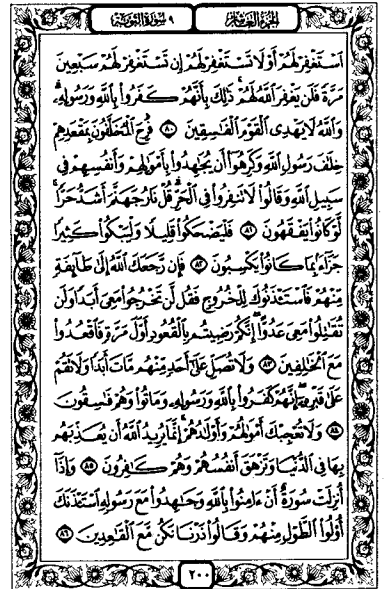 الجزء العاشر ٩ سورة التوبة
ٱسْتَغْفِرْ لَهُمْ أَوْ لَا تَسْتَغْفِرْ لَهُمْ إِن تَسْتَغْفِرْ لَهُمْ سَبْعِينَ
مَرَّةً فَلَن يَغْفِرَ ٱللَّهُ لَهُمْ ۚ ذَٰلِكَ بِأَنَّهُمْ كَفَرُوا۟ بِٱللَّهِ وَرَسُولِهِۦ ۗ
وَٱللَّهُ لَا يَهْدِى ٱلْقَوْمَ ٱلْفَٰسِقِينَ ٨٠ فَرِحَ ٱلْمُخَلَّفُونَ بِمَقْعَدِهِمْ
خِلَٰفَ رَسُولِ ٱللَّهِ وَكَرِهُوٓا۟ أَن يُجَٰهِدُوا۟ بِأَمْوَٰلِهِمْ وَأَنفُسِهِمْ فِى
سَبِيلِ ٱللَّهِ وَقَالُوا۟ لَا تَنفِرُوا۟ فِى ٱلْحَرِّ ۗ قُلْ نَارُ جَهَنَّمَ أَشَدُّ حَرًّا ۚ
لَّوْ كَانُوا۟ يَفْقَهُونَ ٨١ فَلْيَضْحَكُوا۟ قَلِيلًا وَلْيَبْكُوا۟ كَثِيرًا
جَزَآءًۢ بِمَا كَانُوا۟ يَكْسِبُونَ ٨٢ فَإِن رَّجَعَكَ ٱللَّهُ إِلَىٰ طَآئِفَةٍ
مِّنْهُمْ فَٱسْتَـْٔذَنُوكَ لِلْخُرُوجِ فَقُل لَّن تَخْرُجُوا۟ مَعِىَ أَبَدًا وَلَن
تُقَٰتِلُوا۟ مَعِىَ عَدُوًّا ۖ إِنَّكُمْ رَضِيتُم بِٱلْقُعُودِ أَوَّلَ مَرَّةٍ فَٱقْعُدُوا۟
مَعَ ٱلْخَٰلِفِينَ ٨٣ وَلَا تُصَلِّ عَلَىٰٓ أَحَدٍ مِّنْهُم مَّاتَ أَبَدًا وَلَا تَقُمْ
عَلَىٰ قَبْرِهِۦٓ ۖ إِنَّهُمْ كَفَرُوا۟ بِٱللَّهِ وَرَسُولِهِۦ وَمَاتُوا۟ وَهُمْ فَٰسِقُونَ
٨٤ وَلَا تُعْجِبْكَ أَمْوَٰلُهُمْ وَأَوْلَٰدُهُمْ ۚ إِنَّمَا يُرِيدُ ٱللَّهُ أَن يُعَذِّبَهُم
بِهَا فِى ٱلدُّنْيَا وَتَزْهَقَ أَنفُسُهُمْ وَهُمْ كَٰفِرُونَ ٨٥ وَإِذَآ
أُنزِلَتْ سُورَةٌ أَنْ ءَامِنُوا۟ بِٱللَّهِ وَجَٰهِدُوا۟ مَعَ رَسُولِهِ ٱسْتَـْٔذَنَكَ
أُو۟لُوا۟ ٱلطَّوْلِ مِنْهُمْ وَقَالُوا۟ ذَرْنَا نَكُن مَّعَ ٱلْقَٰعِدِينَ ٨٦
٢٠٠